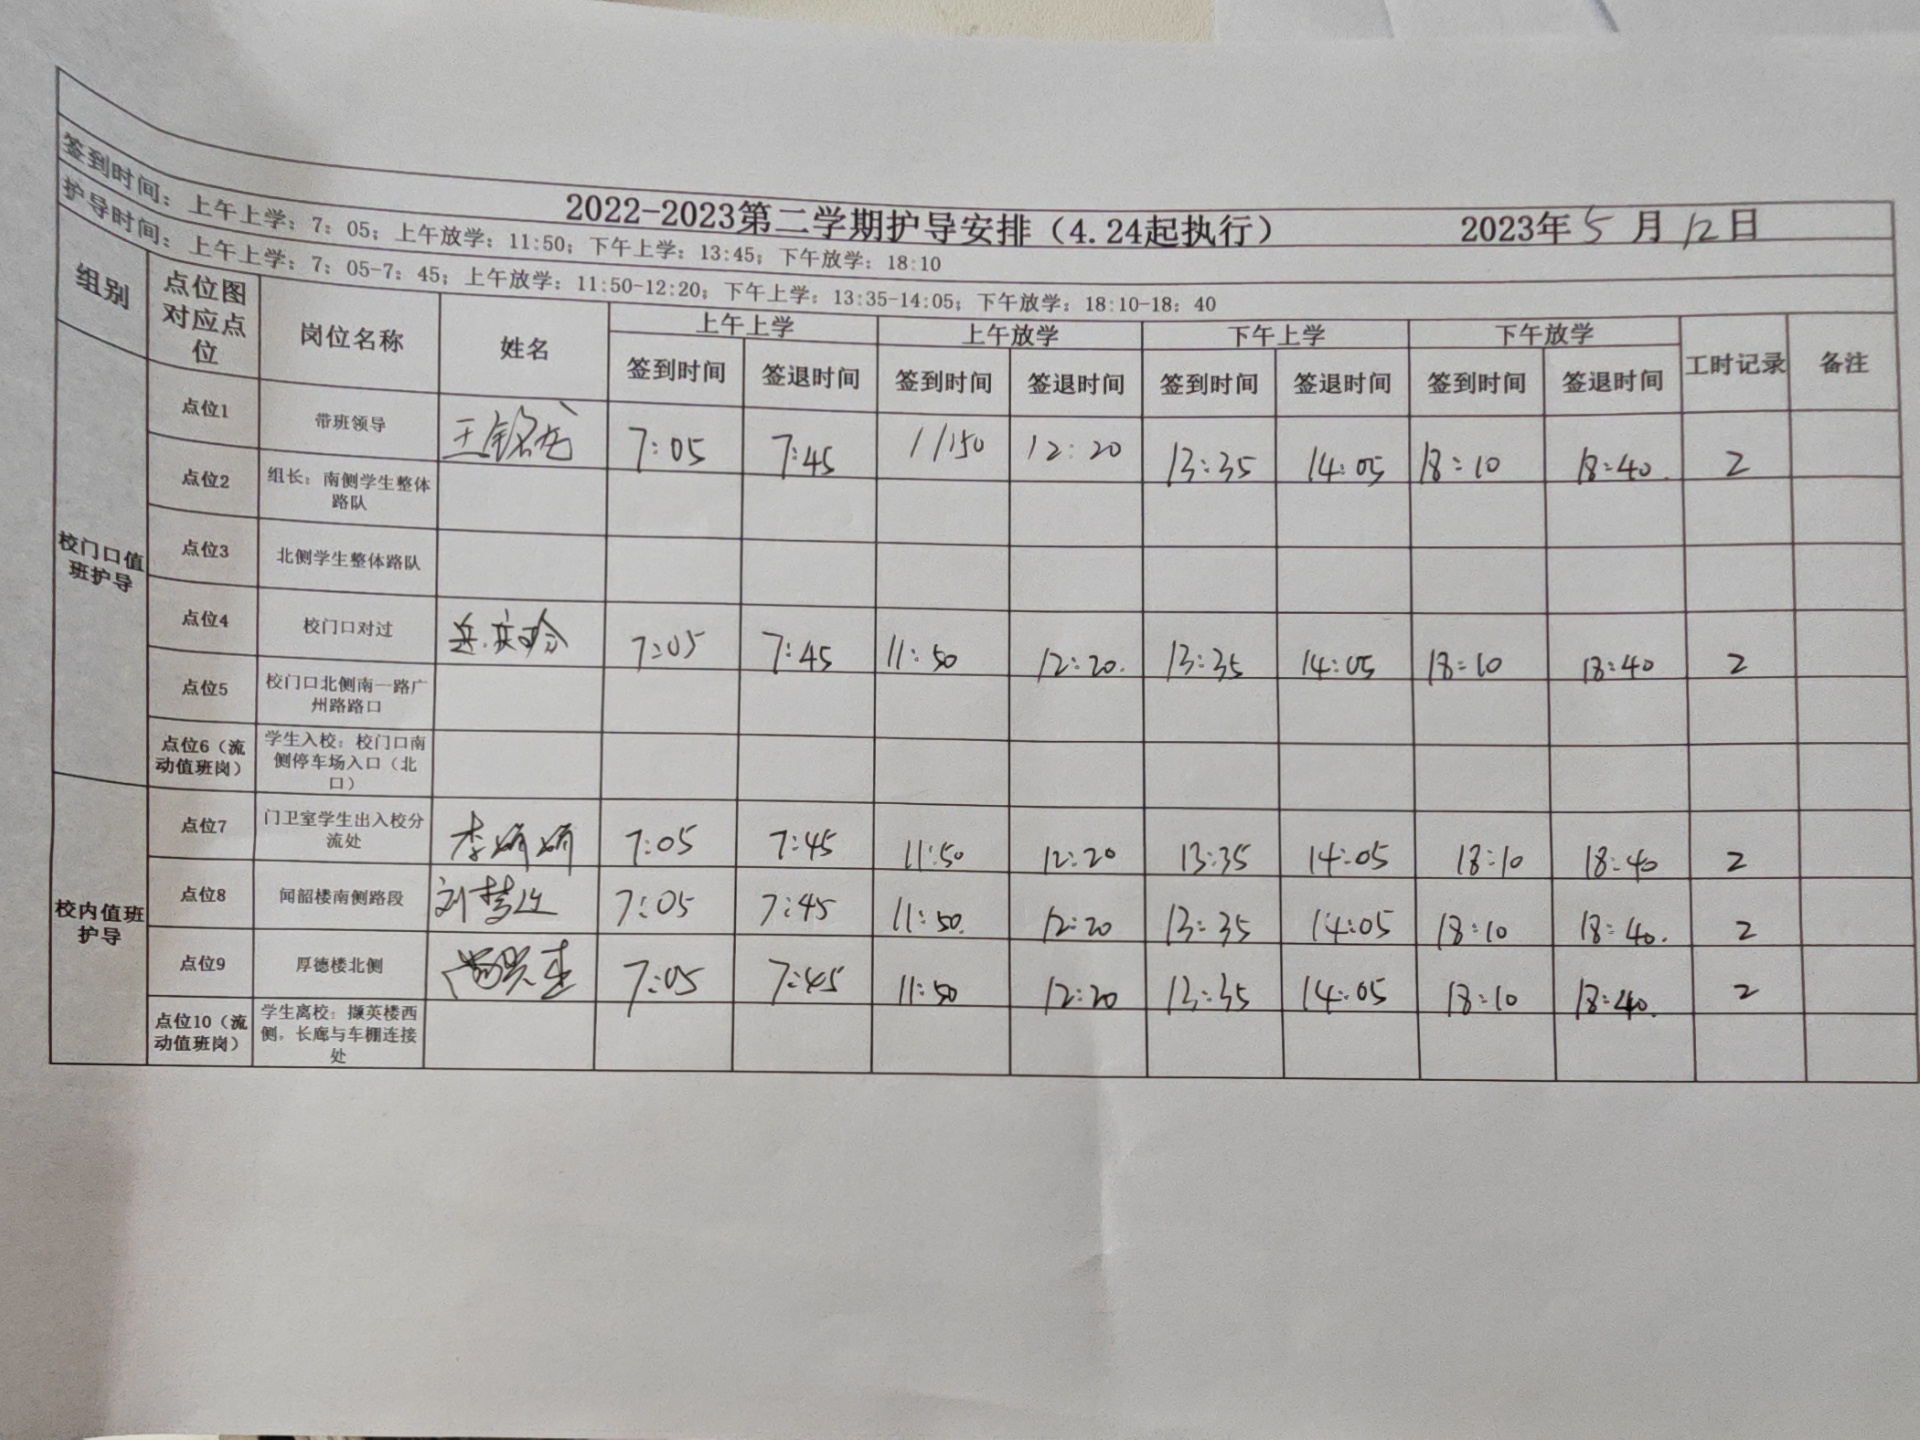 2022-2023第二学期护导安排（4.24起执行） 2023年5月12日
签到时间：上午上学：7：05；上午放学：11:50；下午上学：13:45；下午放学：18:10
护导时间：上午上学：7：05-7：45；上午放学：11:50-12:20；下午上学：13:35-14:05；下午放学：18:10-18：40
组别 点位图对应点位 岗位名称 姓名 上午上学 上午放学 下午上学 下午放学 工时记录 备注
签到时间 签退时间 签到时间 签退时间 签到时间 签退时间 签到时间 签退时间
校门口值班护导
点位1 带班领导 王铭龙 7:05 7:45 11:50 12:20 13:35 14:05 18:10 18:40. 2
点位2 组长：南侧学生整体路队
点位3 北侧学生整体路队
点位4 校门口对过 7:05 7:45 11:50 12:20. 13:35 14:05 18:10 18:40 2
点位5 校门口北侧南一路广州路路口
点位6（流动值班岗） 学生入校：校门口南侧停车场入口（北口）
校内值班护导
点位7 门卫室学生出入校分流处 李娟娟 7:05 7:45 11:50 12:20 13:35 14:05 18:10 18:40 2
点位8 闻韶楼南侧路段 刘梦 7:05 7:45 11:50. 12:20 13:35 14:05 18:10 18:40. 2
点位9 厚德楼北侧 7:05 7:45 11:50 12:20 13:35 14:05 18:10 18:40. 2
点位10（流动值班岗） 学生离校：撷英楼西侧，长廊与车棚连接处